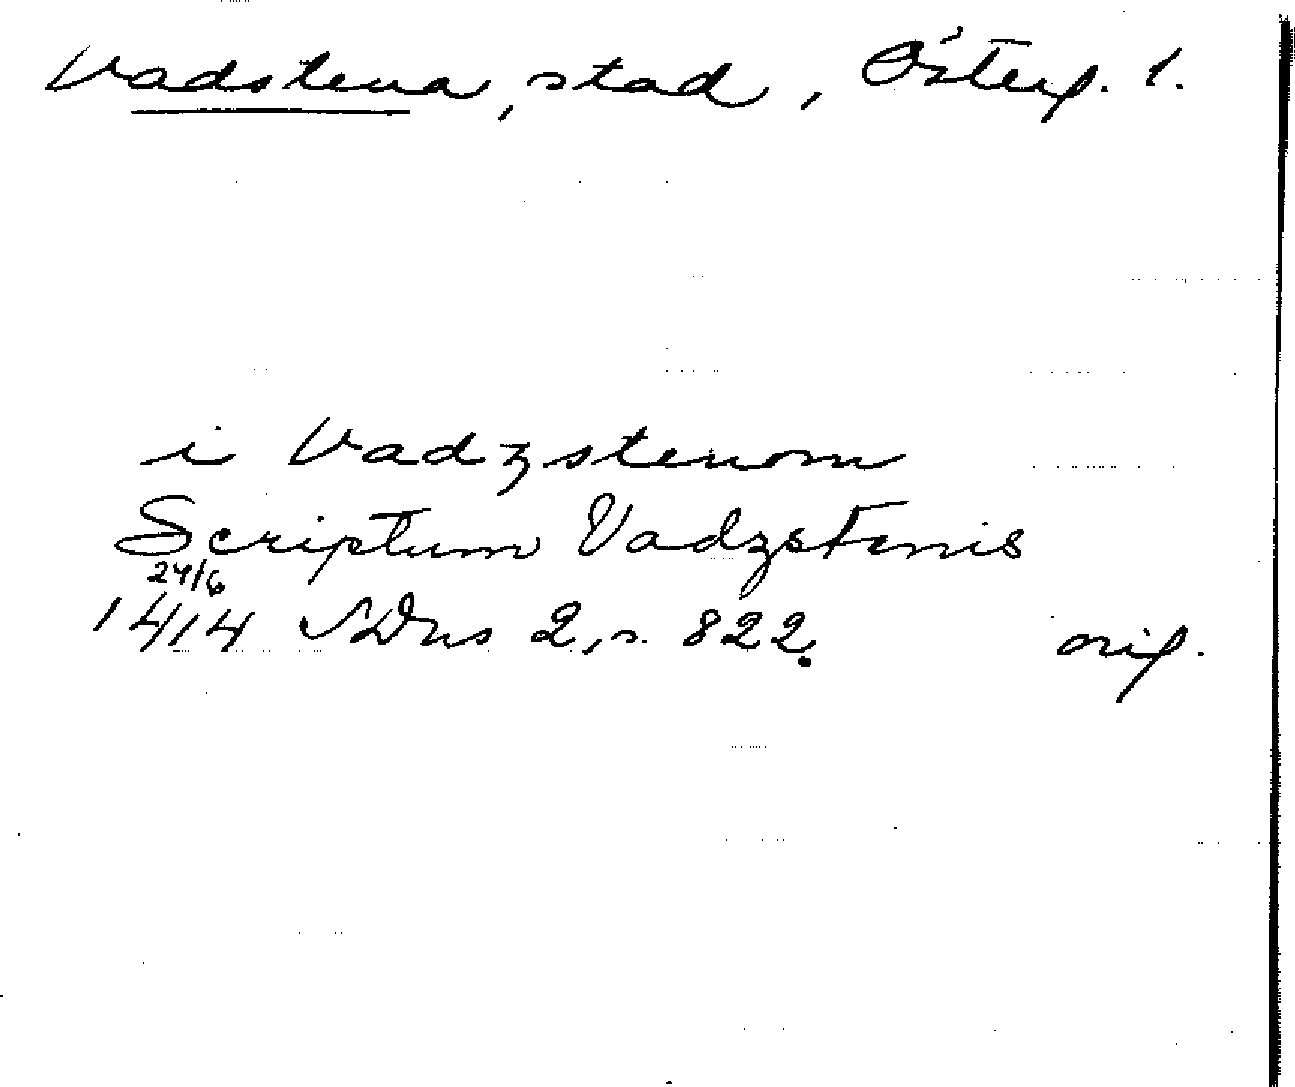 Vadstena, stad, Österg. l.
i Vadzstenom
Scriptum Vadzstenis
24/6
1414 SDns 2, s. 822.
orig.